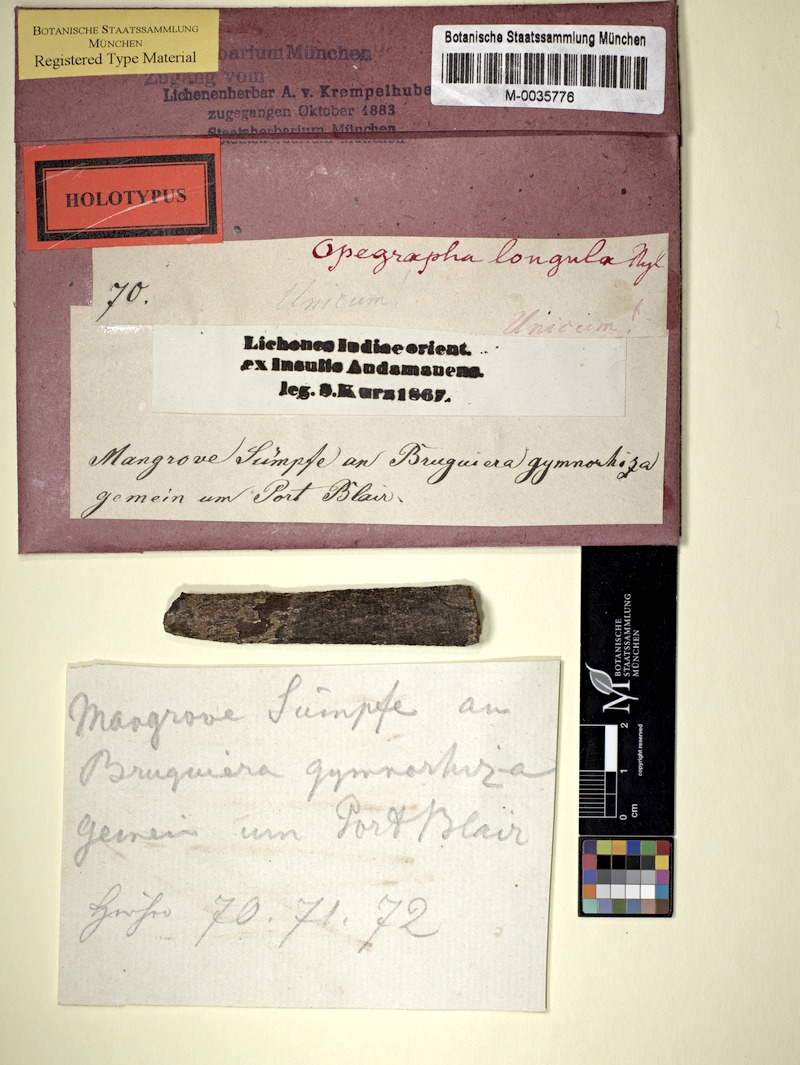 BOTANISCHE STAATSSAMMLUNG
MÜNCHEN
Registered Type Material
Botanische Staatssammlung München
M-0035776
Zugang vom
Lichenenherbar A. v. Krempelhube
zugegangen Oktober 1883
Staatsherbarium München
HOLOTYPUS
Opegrapha longula Nyl
70.
Unicum!
Unicum!
Lichenes Indiae orient.
ex Insulis Andamanens.
leg. S. Kurz 1867.
Mangrove Sümpfe an Bruguiera gymnorhiza
gemein um Port Blair.
Mangrove Sümpfe an
Bruguiera gymnorhiza
gemein um Port Blair
70. 71. 72
BOTANISCHE
STAATSSAMMLUNG
MÜNCHEN
copyright reserved
0 1 2
cm